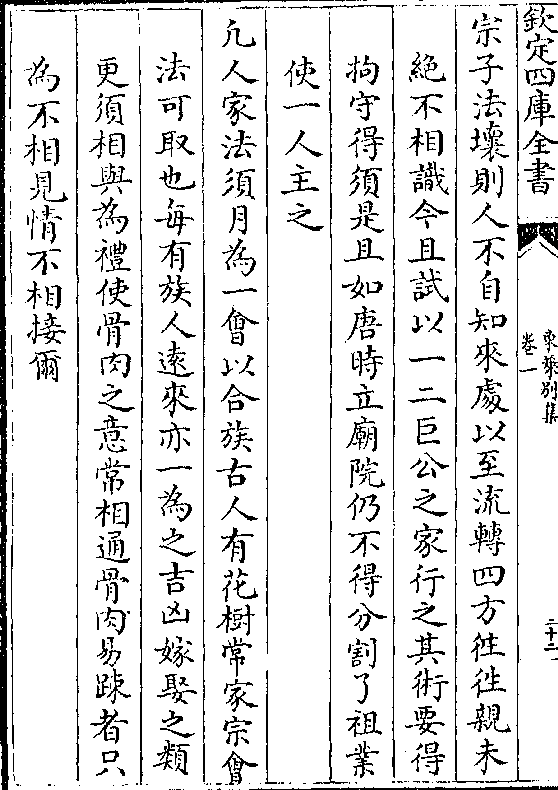 欽定四庫全書
東萊別集
卷一
二十二
宗子法壞則人不自知來處以至流轉四方徃徃親未
絶不相識今且試以一二巨公之家行之其術要得
拘守得須是且如唐時立廟院仍不得分割了祖業
使一人主之
凢人家法須月為一㑹以合族古人有花樹常家宗㑹
法可取也每有族人逺來亦一為之吉凶嫁娶之類
更須相與為禮使骨肉之意常相通骨肉易踈者只
為不相見情不相接爾